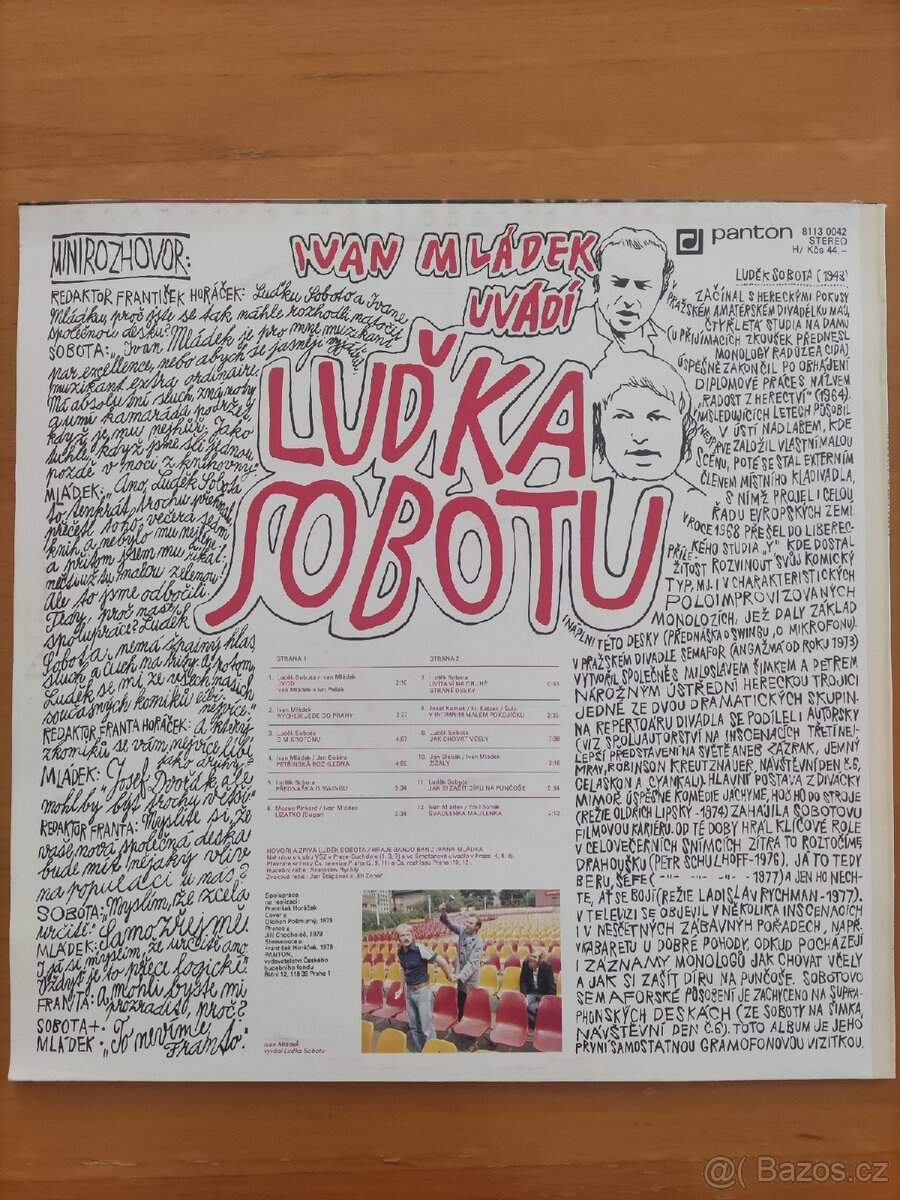 MINIROZHOVOR:
REDAKTOR FRANTIŠEK HORÁČEK: Luďku Soboto a Ivane
Mládku, proč jste se tak náhle rozhodli natočit
společnou desku?
SOBOTA: „Ivan Mládek je pro mne muzikant
par excellence, nebo abych se jasněji vyjádřil,
muzikant extra ordinaire.
Má absolutní sluch, zná noty
a umí kamaráda podržet,
když je mu nejhůř. Jako
tuhle, když jsme šli Janou
pozdě v noci z knihovny."
MLÁDEK: „Ano, Luděk Sobota
to tenkrát trochu
přečetl toho večera sedm
knih a nebylo mu nejlíp
a přitom jsem mu říkal:
Ale to jsme odbočili.
Tedy, proč naše
spolupráce? Luděk
Sobota nemá špatný hlas
sluch a čich na hity a potom,
Luděk se mi ze všech našich
současných komiků líbí
nejvíce."
REDAKTOR FRANTA HORÁČEK: A který
z komiků se vám nejvíce líbí
jako druhý?
MLÁDEK: „Josef Dvořák, ale
mohl by být trochu větší."
REDAKTOR FRANTA: Myslíte si, že
vaše nová společná deska
bude mít nějaký vliv
na populaci u nás?
SOBOTA: „Myslím, že zcela
určitě." Samozřejmě
MLÁDEK:
I já si myslím, že určitě ano.
Vždyť je to přeci logické."
FRANTA: A mohli byste mi
prozradit, proč?
SOBOTA +
MLÁDEK: „To nevíme,
Franto."
IVAN MLÁDEK
UVÁDÍ
LUĎKA
SOBOTU
panton
8113 0042
STEREO
H/ Kčs 44,–
STRANA 1
1. Luděk Sobota / Ivan Mládek
ÚVOD 2:10
Ivan Mládek a Ivo Pešák
2. Ivan Mládek
RYCHLÍK JEDE DO PRAHY 2:37
3. Luděk Sobota
O MIKROFONU 4:57
4. Ivan Mládek / Jan
PETŘÍNSKÁ ROZHLEDNA
5. Luděk Sobota
PŘEDNÁŠKA O SWINGU
6. Maceo Pinkard / Ivan Mládek
LÍZÁTKO (Sugar) 3:34
STRANA 2
7. Luděk Sobota
UVÍTÁNÍ NA DRUHÉ
STRANĚ DESKY
8. Josef Kumok / Fr. / Sulo
V INTIMNÍM MALÉM POKOJÍČKU
9. Luděk Sobota
JAK CHOVAT VČELY
10. Jan / Ivan Mládek
ŽÍŽALY
11. Luděk Sobota
JAK SI ZAŠÍT DÍRU NA PUNČOŠE
12. Ivan Mládek / Emil Synek
ŠVADLENKA MADLENKA 2:12
HOVOŘÍ A ZPÍVÁ LUDĚK SOBOTA / HRAJE BANJO BAND IVANA MLÁDKA
Hudební režie: Svatoslav Rychlý
Zvuková režie: Jan Štěpánek a Jiří
Spolupráce
na realizaci:
František Horáček
Cover ©
Oldřich Pošmurný, 1979
Photos ©
Jiří 1979
Sleevenote ©
František Horáček, 1979
PANTON,
vydavatelství Českého
hudebního fondu
Říční 12, 118 39 Praha 1
Ivan Mládek
vyvádí Luďka Sobotu
LUDĚK SOBOTA (1943)
ZAČÍNAL S HERECKÝMI POKUSY
V PRAŽSKÉM AMATÉRSKÉM DIVADELKU MÁJ,
ČTYŘLETÁ STUDIA NA DAMU
(U PŘIJÍMACÍCH ZKOUŠEK PŘEDNESL
MONOLOBY RADÚZE A CIDA)
ÚSPĚŠNĚ ZAKONČIL PO OBHÁJENÍ
DIPLOMOVÉ PRÁCE S NÁZVEM
„RADOST Z HERECTVÍ" (1964).
V NÁSLEDUJÍCÍCH LETECH PŮSOBIL
V ÚSTÍ NAD LABEM, KDE
NEJPRVE ZALOŽIL VLASTNÍ MALOU
SCÉNU, POTÉ SE STAL EXTERNÍM
ČLENEM MÍSTNÍHO KLADIVADLA,
S NÍMŽ PROJEL I CELOU
ŘADU EVROPSKÝCH ZEMÍ.
V ROCE 1968 PŘEŠEL DO LIBEREC-
KÉHO STUDIA „Y" KDE DOSTAL
PŘÍLEŽITOST ROZVINOUT SVŮJ KOMICKÝ
TYP, MJ. I V CHARAKTERISTICKÝCH
POLOIMPROVIZOVANÝCH
MONOLOZÍCH, JEŽ DALY ZÁKLAD
I NÁPLNI TÉTO DESKY (PŘEDNÁŠKA O SWINGU, O MIKROFONU).
V PRAŽSKÉM DIVADLE SEMAFOR (ANGAŽMÁ OD ROKU 1973)
VYTVOŘIL SPOLEČNĚ S MILOSLAVEM ŠIMKEM A PETREM
NÁROŽNÝM ÚSTŘEDNÍ HERECKOU TROJICI
JEDNÉ ZE DVOU DRAMATICKÝCH SKUPIN.
NA REPERTOÁRU DIVADLA SE PODÍLEL I AUTORSKY
(VIZ SPOLUAUTORSTVÍ NA INSCENACÍCH TŘETÍ NEJ-
LEPŠÍ PŘEDSTAVENÍ NA SVĚTĚ ANEB ZÁZRAK, JEMNÝ
MRAV, ROBINSON KREUTZNAUER, NÁVŠTĚVNÍ DEN Č.6,
CELASKON A CYANKALI). HLAVNÍ POSTAVA Z DIVÁCKY
MIMOŘ. ÚSPĚŠNÉ KOMEDIE JÁCHYME, HOĎ HO DO STROJE
(REŽIE OLDŘICH LIPSKÝ -1974) ZAHÁJILA SOBOTOVU
FILMOVOU KARIÉRU. OD TÉ DOBY HRÁL KLÍČOVÉ ROLE
V CELOVEČERNÍCH SNÍMCÍCH ZÍTRA TO ROZTOČÍME,
DRAHOUŠKU (PETR SCHULHOFF -1976), JÁ TO TEDY
BERU, ŠÉFE (-"- -"- -1977) A JEN HO NECH-
TE, AŤ SE BOJÍ (REŽIE LADISLAV RYCHMAN -1977).
V TELEVIZI SE OBJEVIL V NĚKOLIKA INSCENACÍCH
I V NESČETNÝCH ZÁBAVNÝCH POŘADECH, NAPŘ.
V KABARETU U DOBRÉ POHODY, ODKUD POCHÁZEJÍ
I ZÁZNAMY MONOLOGŮ JAK CHOVAT VČELY
A JAK SI ZAŠÍT DÍRU NA PUNČOŠE. SOBOTOVO
SEMAFORSKÉ PŮSOBENÍ JE ZACHYCENO NA SUPRA-
PHONSKÝCH DESKÁCH (ZE SOBOTY NA ŠIMKA,
NÁVŠTĚVNÍ DEN Č.6). TOTO ALBUM JE JEHO
PRVNÍ SAMOSTATNOU GRAMOFONOVOU VIZITKOU.
@( Bazos.cz